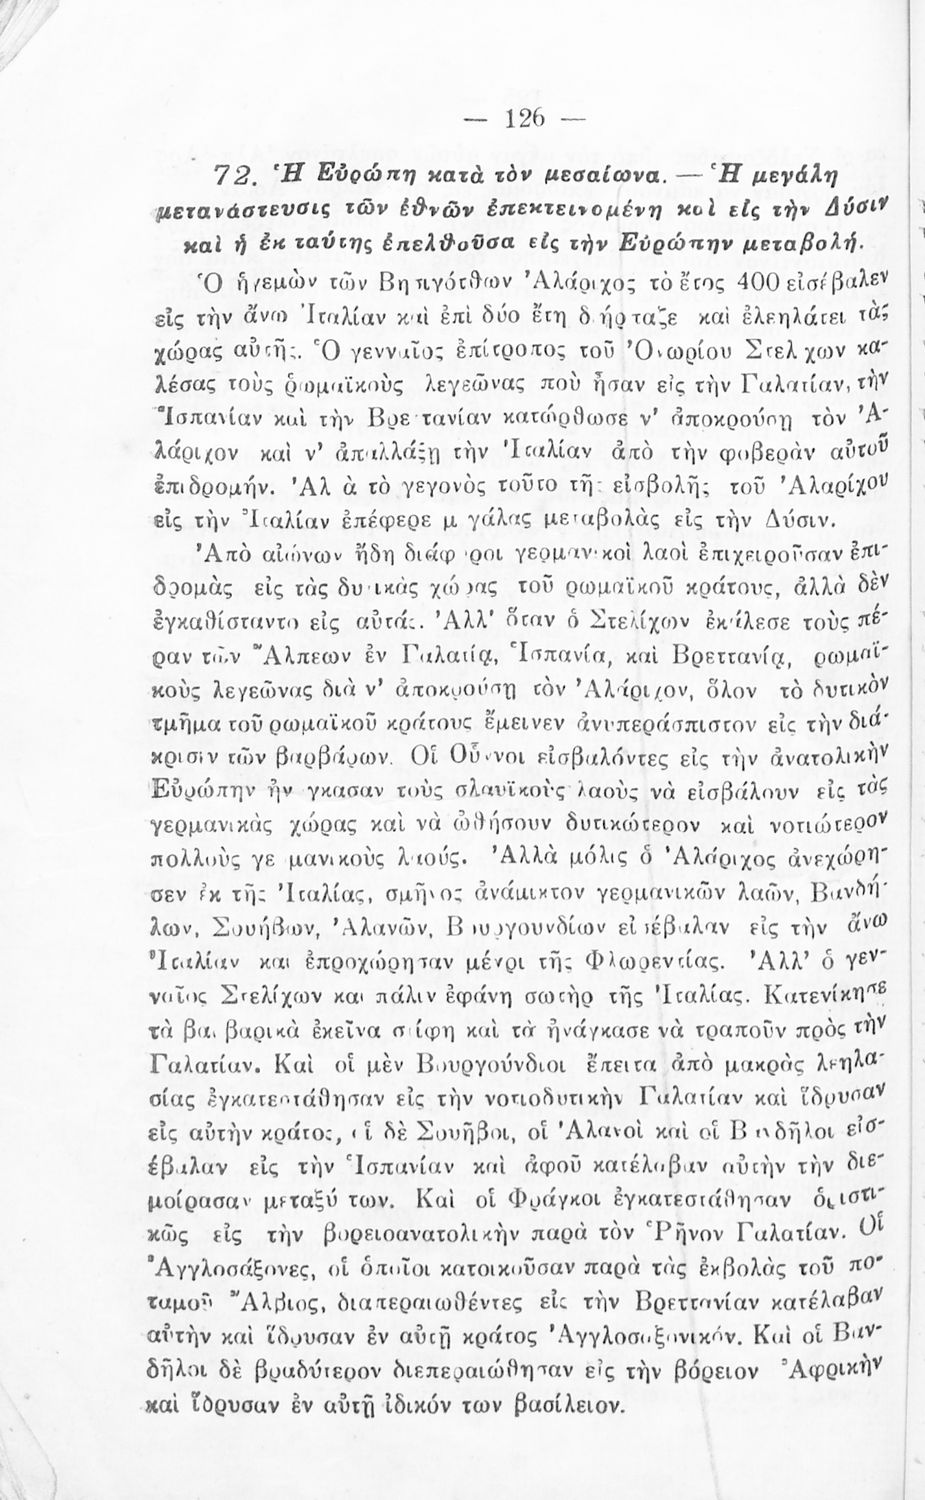 — 126 —
72. Ἡ Εὐρώπη κατὰ τὸν μεσαίωνα. — Ἡ μεγάλη
μετανάστευσις τῶν ἐθνῶν ἐπεκτεινομένη καὶ εἰς τὴν Δύσιν
καὶ ἡ ἐκ ταύτης ἐπελθοῦσα εἰς τὴν Εὐρώπην μεταβολή.
Ὁ ἡγεμὼν τῶν Βησιγότθων Ἀλάριχος τὸ ἔτος 400 εἰσέβαλεν
εἰς τὴν ἄνω Ἰταλίαν καὶ ἐπὶ δύο ἔτη διήρπαζε καὶ ἐλεηλάτει τὰς
χώρας αὐτῆς. Ὁ γενναῖος ἐπίτροπος τοῦ Ὁνωρίου Στελίχων κα-
λέσας τοὺς ῥωμαϊκοὺς λεγεῶνας ποὺ ἦσαν εἰς τὴν Γαλατίαν, τὴν
Ἱσπανίαν καὶ τὴν Βρεττανίαν κατώρθωσε ν' ἀποκρούσῃ τὸν Ἀ-
λάριχον καὶ ν' ἀπαλλάξῃ τὴν Ἰταλίαν ἀπὸ τὴν φοβερὰν αὐτοῦ
ἐπιδρομήν. Ἀλλὰ τὸ γεγονὸς τοῦτο τῆς εἰσβολῆς τοῦ Ἀλαρίχου
εἰς τὴν Ἰταλίαν ἐπέφερε μεγάλας μεταβολὰς εἰς τὴν Δύσιν.
Ἀπὸ αἰώνων ἤδη διάφοροι γερμανικοὶ λαοὶ ἐπιχειροῦσαν ἐπι-
δρομὰς εἰς τὰς δυτικὰς χώρας τοῦ ρωμαϊκοῦ κράτους, ἀλλὰ δὲν
ἐγκαθίσταντο εἰς αὐτάς. Ἀλλ' ὅταν ὁ Στελίχων ἐκάλεσε τοὺς πέ-
ραν τῶν Ἄλπεων ἐν Γαλατίᾳ, Ἱσπανίᾳ, καὶ Βρεττανίᾳ, ρωμαϊ-
κοὺς λεγεῶνας διὰ ν' ἀποκρούσῃ τὸν Ἀλάριχον, ὅλον τὸ δυτικὸν
τμῆμα τοῦ ρωμαϊκοῦ κράτους ἔμεινεν ἀνυπεράσπιστον εἰς τὴν διά-
κρισιν τῶν βαρβάρων. Οἱ Οὗννοι εἰσβαλόντες εἰς τὴν ἀνατολικὴν
Εὐρώπην ἠνάγκασαν τοὺς σλαυϊκοὺς λαοὺς νὰ εἰσβάλουν εἰς τὰς
γερμανικὰς χώρας καὶ νὰ ὠθήσουν δυτικώτερον καὶ νοτιώτερον
πολλοὺς γερμανικοὺς λαούς. Ἀλλὰ μόλις ὁ Ἀλάριχος ἀνεχώρη-
σεν ἐκ τῆς Ἰταλίας, σμῆνος ἀνάμικτον γερμανικῶν λαῶν, Βανδή-
λων, Σουήβων, Ἀλανῶν, Βουργουνδίων εἰσέβαλαν εἰς τὴν ἄνω
Ἰταλίαν και ἐπροχώρησαν μέχρι τῆς Φλωρεντίας. Ἀλλ' ὁ γεν-
ναῖος Στελίχων και πάλιν ἐφάνη σωτὴρ τῆς Ἰταλίας. Κατενίκησε
τὰ βαρβαρικὰ ἐκεῖνα στίφη καὶ τὰ ἠνάγκασε νὰ τραποῦν πρὸς τὴν
Γαλατίαν. Καὶ οἱ μὲν Βουργούνδιοι ἔπειτα ἀπὸ μακρὰς λεηλα-
σίας ἐγκατεστάθησαν εἰς τὴν νοτιοδυτικὴν Γαλατίαν καὶ ἵδρυσαν
εἰς αὐτὴν κράτος, οἱ δὲ Σουῆβοι, οἱ Ἀλανοὶ καὶ οἱ Βανδῆλοι εἰσ-
έβαλαν εἰς τὴν Ἱσπανίαν καὶ ἀφοῦ κατέλαβαν αὐτὴν τὴν διε-
μοίρασαν μεταξύ των. Καὶ οἱ Φράγκοι ἐγκατεστάθησαν ὁριστι-
κῶς εἰς τὴν βορειοανατολικὴν παρὰ τὸν Ῥῆνον Γαλατίαν. Οἱ
Ἀγγλοσάξονες, οἱ ὁποῖοι κατοικοῦσαν παρὰ τὰς ἐκβολὰς τοῦ πο-
ταμοῦ Ἄλβιος, διαπεραιωθέντες εἰς τὴν Βρεττανίαν κατέλαβαν
αὐτὴν καὶ ἵδρυσαν ἐν αὐτῇ κράτος Ἀγγλοσαξονικόν. Καὶ οἱ Βαν-
δῆλοι δὲ βραδύτερον διεπεραιώθησαν εἰς τὴν βόρειον Ἀφρικὴν
καὶ ἵδρυσαν ἐν αὐτῇ ἰδικόν των βασίλειον.